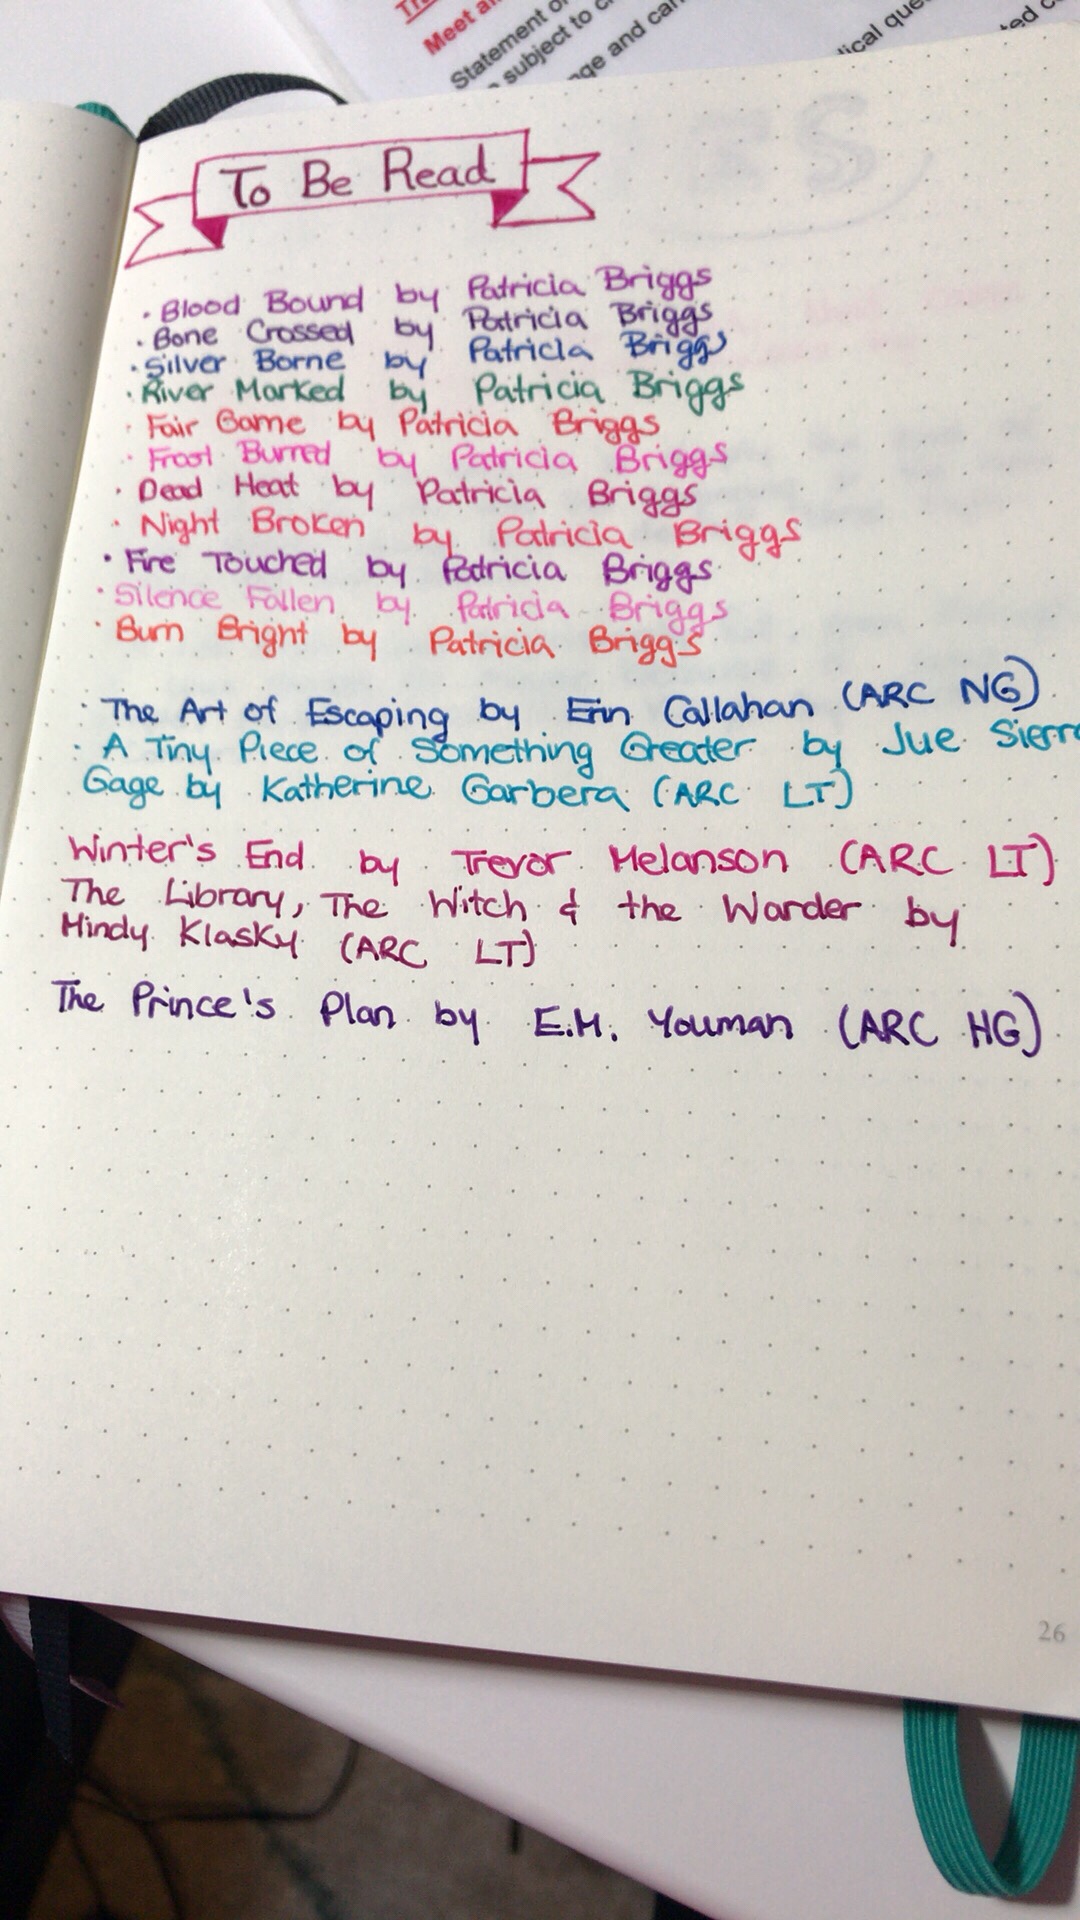 Meet a
Statement o
subject to c
ge and can
ical que
ted c
To Be Read
· Blood Bound by Patricia Briggs
· Bone Crossed by Patricia Briggs
· Silver Borne by Patricia Briggs
· River Marked by Patricia Briggs
· Fair Game by Patricia Briggs
· Frost Burred by Patricia Briggs
· Dead Heat by Patricia Briggs
· Night Broken by Patricia Briggs
· Fire Touched by Patricia Briggs
· Silence Fallen by Patricia Briggs
· Burn Bright by Patricia Briggs
· The Art of Escaping by Erin Callahan (ARC NG)
· A Tiny Piece of Something Greater by Jue Sierra
Gage by Katherine Garbera (ARC LT)
Winter's End by Trevor Melanson (ARC LT)
The Library, The Witch & the Warder by
Mindy Klasky (ARC LT)
The Prince's Plan by E.M. Youman (ARC HG)
26